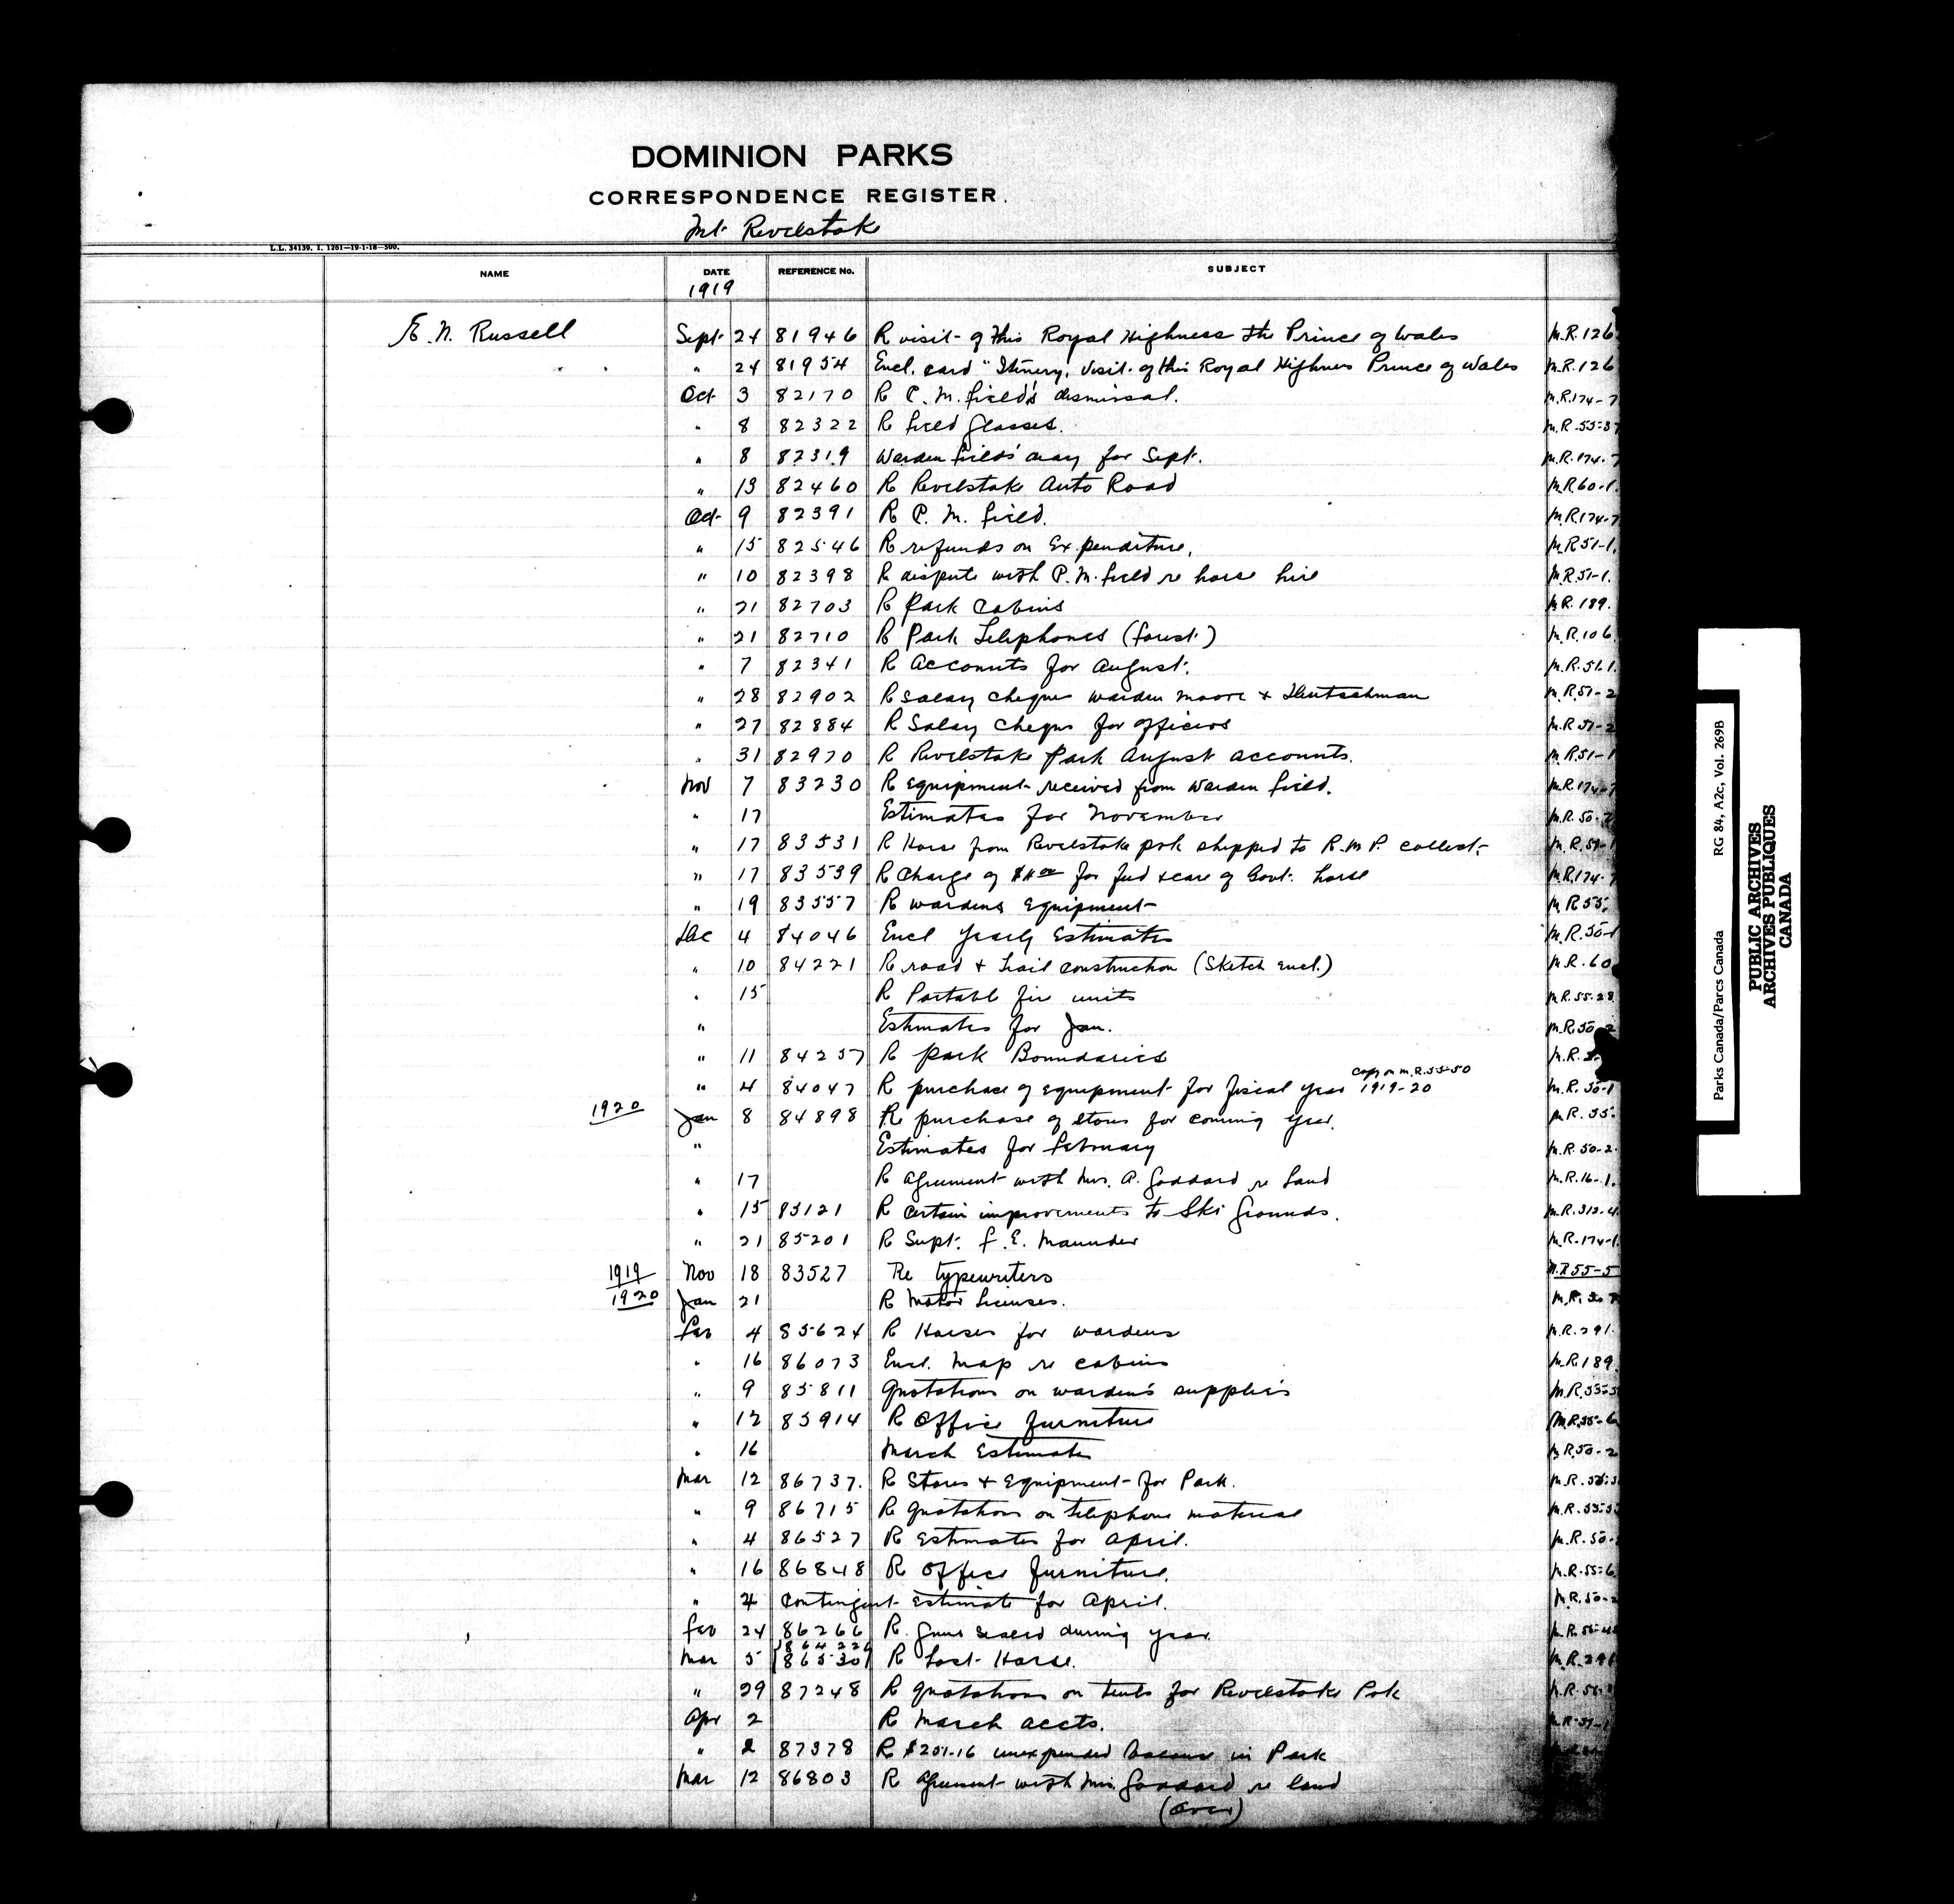 DOMINION PARKS
CORRESPONDENCE REGISTER.
Mt. Revelstoke
L.L. 34139. I. 1261—19-1-18—500.
NAME DATE REFERENCE No. SUBJECT
1919
E. N. Russell Sept. 24 81946 R visit of His Royal Highness the Prince of Wales M.R.126
" 24 81954 Encl. card "Itinery, visit of His Royal Highness Prince of Wales M.R.126
Oct 3 82170 R P. M. Field's dismissal. M.R.174-7
" 8 82322 R Field Glasses. M.R.55-37
" 8 82319 Warden Fields' diary for Sept. M.R.174-7
" 13 82460 R Revelstoke Auto Road M.R.60-1.
Oct. 9 82391 R P. M. Field. M.R.174-7
" 15 82546 R refunds on Expenditure. M.R.51-1.
" 10 82398 R dispute with P. M. Field re horse hire M.R.51-1.
" 21 82703 R Park Cabins M.R.189.
" 21 82710 R Park Telephones (forest) M.R.106
" 7 82341 R Accounts for August. M.R.51.1.
" 28 82902 R salary cheque Warden Moore & M.R.51-2
" 27 82884 R Salary cheques for officers M.R.51-2
" 31 82970 R Revelstoke Park August accounts. M.R.51-1
Nov 7 83230 R Equipment received from Warden Field. M.R.174-7
" 17 Estimates for November M.R.50-2
" 17 83531 R Horse from Revelstoke prk shipped to R.M.P. collect. M.R.51-1
" 17 83539 R Charge of for feed & care of Govt. horse M.R.174-7
" 19 83557 R wardens Equipment M.R.55.
Dec 4 84046 Encl Yearly Estimates M.R.50-1
" 10 84221 R road & trail construction (Sketch encl.) M.R.60
" 15 R Portable fire units M.R.55-28
" Estimates for Jan. M.R.50-2
" 11 84257 R Park Boundaries M.R.
copy on M.R.55-50
" 4 84047 R purchase of equipment for fiscal year 1919-20 M.R.50-1
1920 Jan 8 84898 Re purchase of stores for coming year. M.R.55.
" Estimates for February M.R.50-2.
" 17 R Agreement with Mrs. A. Goddard re land M.R.16-1.
" 15 85121 R certain improvements to Ski Grounds. M.R.312-4.
" 21 85201 R Supt. F. E. Maunder M.R.174-1.
1919 Nov 18 83527 Re typewriters M.R.55-5
1920 Jan 21 R Motor Licenses. M.R.
Feb 4 85624 R Horses for wardens M.R.291.
" 16 86073 Encl. Map re cabins M.R.189.
" 9 85811 Quotations on warden's supplies M.R.55-5
" 12 85914 R Office furniture M.R.55-6
" 16 March Estimates M.R.50-2
Mar 12 86737. R Stores & Equipment for Park. M.R.
" 9 86715 R quotations on telephone material M.R.55-5
" 4 86527 R Estimates for April. M.R.50-
" 16 86848 R Office furniture. M.R.55-6.
" 4 Contingent Estimate for April. M.R.50-2
Feb 24 86266 R. guns sealed during year.
Mar 5 86530 R Lost Horse. M.R.291
" 29 87248 R quotations on tents for Revelstoke Prk
Apr 2 R March accts. M.R.51-1
" 2 87378 R $251-16 unexpended balance in Park
Mar 12 86803 R Agreement with Mrs. Goddard re land
(over)
Parks Canada/Parcs Canada RG 84, A2c, Vol. 269B
PUBLIC ARCHIVES
ARCHIVES PUBLIQUES
CANADA